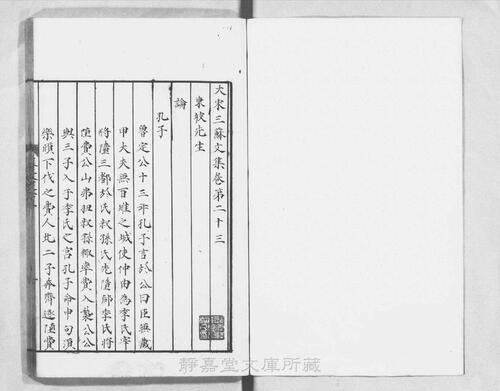 大宋三蘇文集卷第二十三
東坡先生
論
孔子
魯定公十三年孔子言於公曰臣無藏
甲大夫無百雉之城使仲由為季氏宰
將隳三都於是叔孫氏先隳郈季氏將
隳費公山弗狃叔孫輒率費人襲公公
與三子入于季氏之宮孔子命申句須
樂頎下伐之費人北二子奔齊遂隳費
靜嘉堂文庫所藏